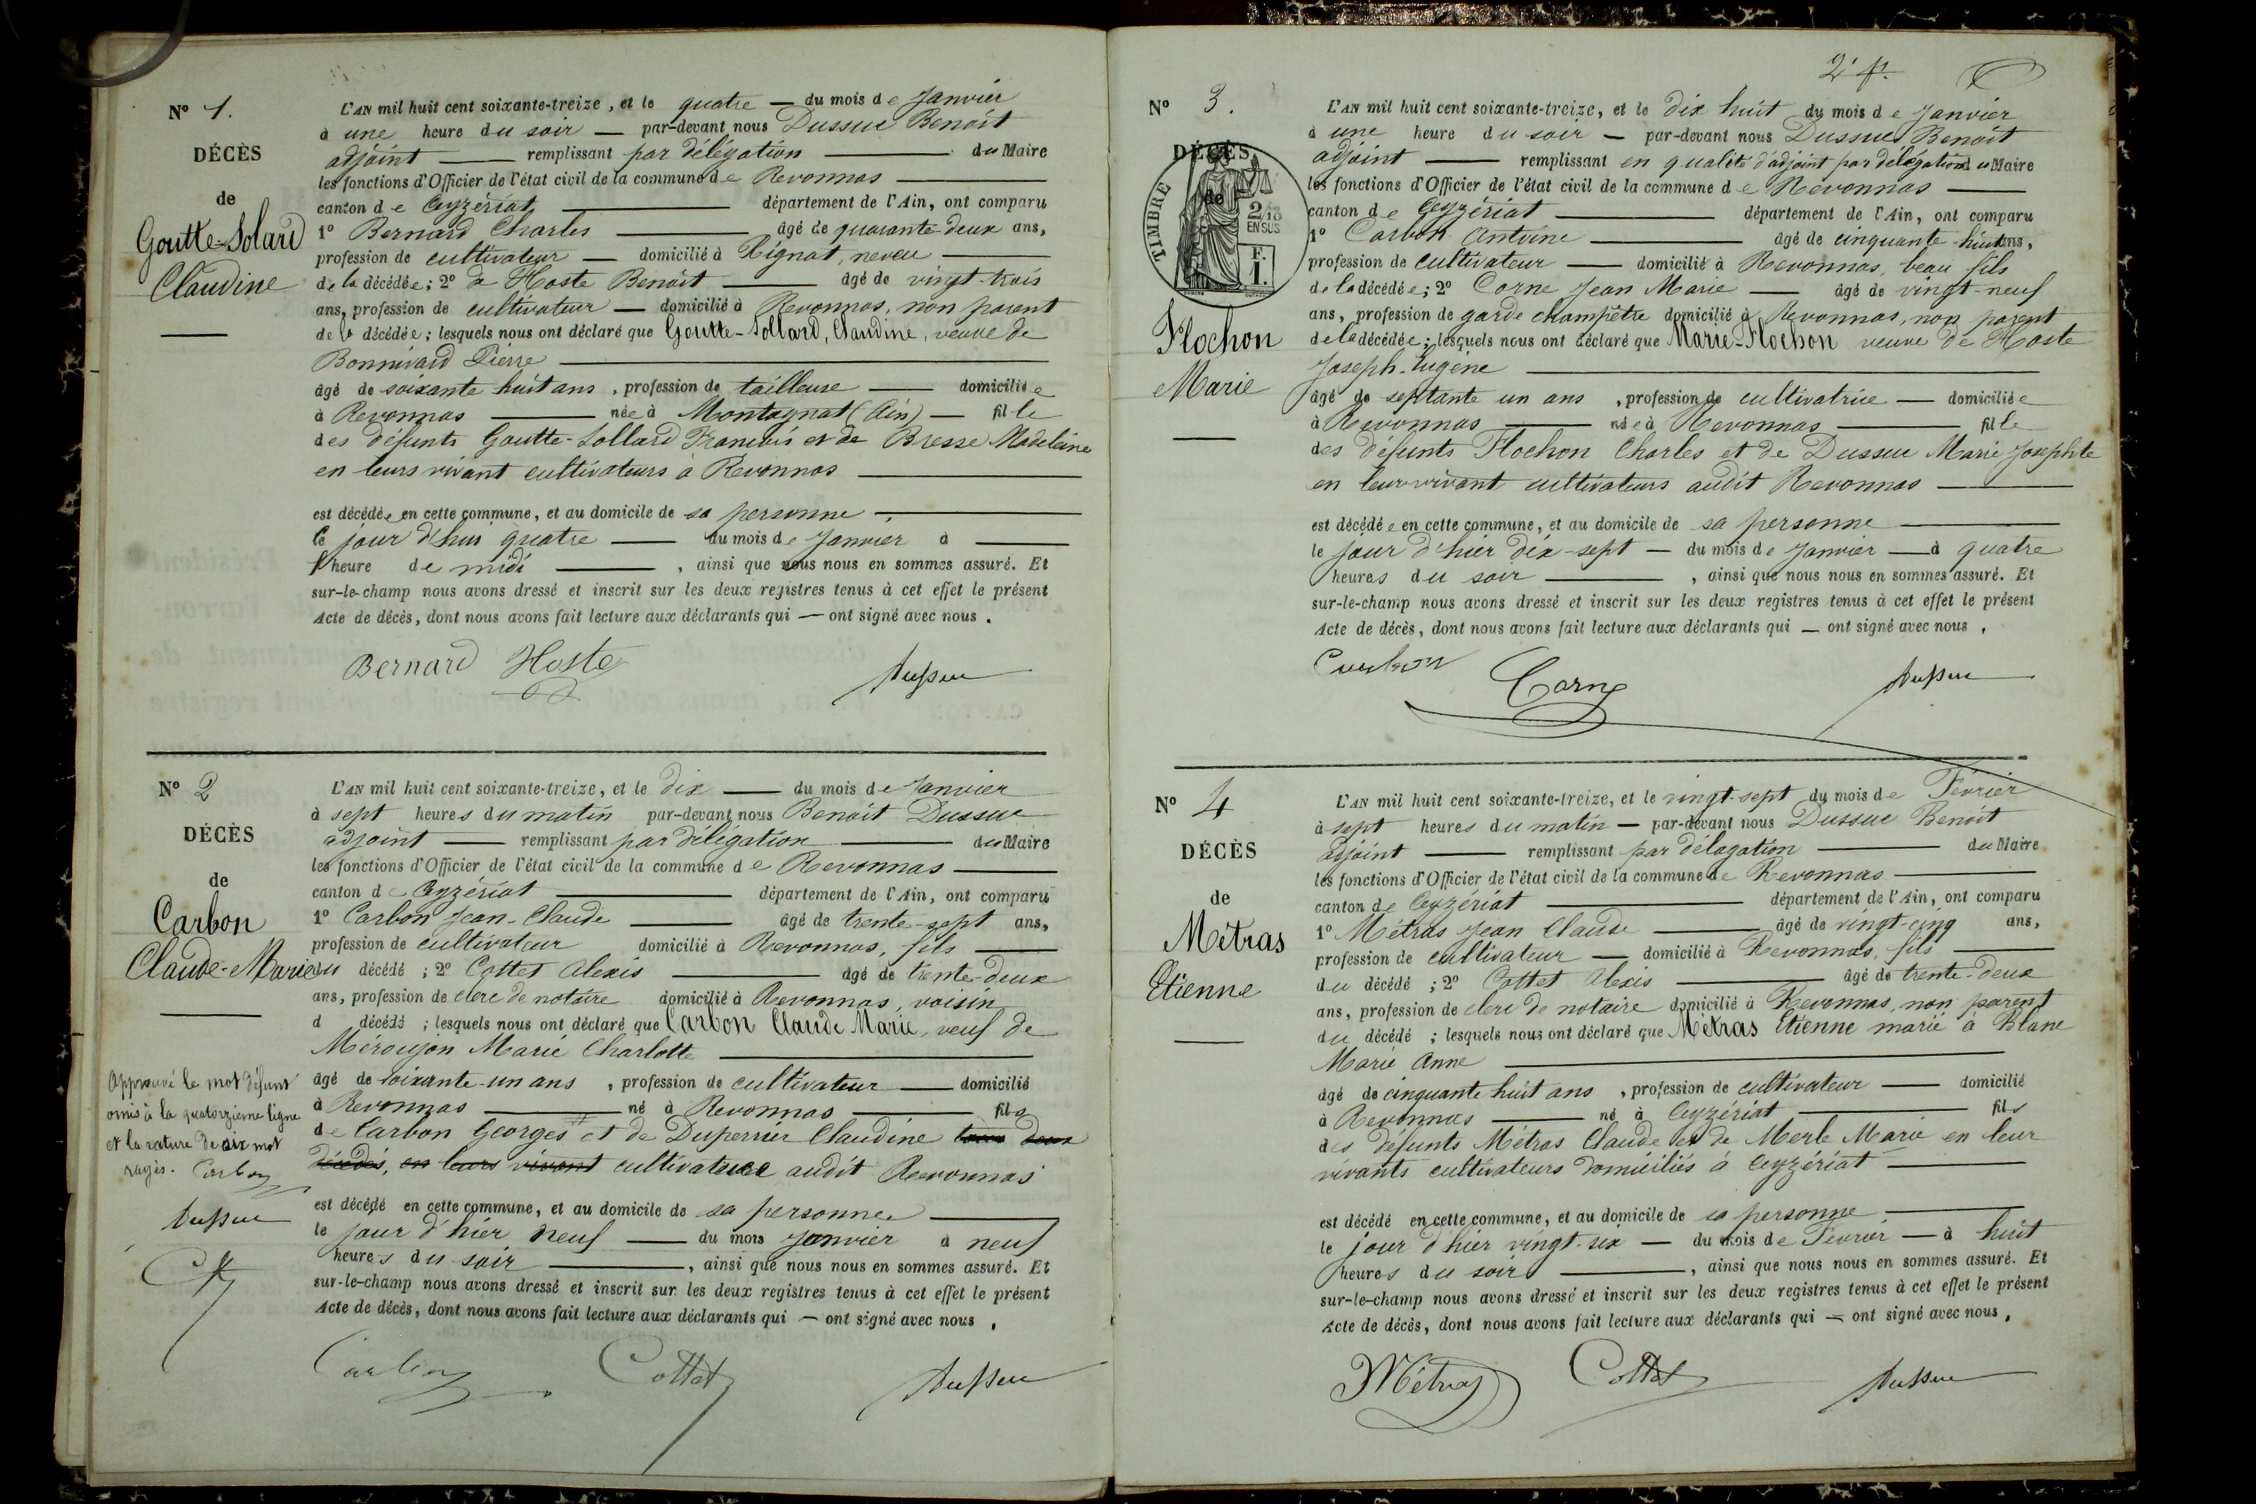 N° 1.
DÉCÈS
de
Goutte-Solard
Claudine
L'AN mil huit cent soixante-treize, et le quatre — du mois de Janvier
à une heure du soir — par-devant nous Dussuc Benoît
adjoint — remplissant par délégation — du Maire
les fonctions d'Officier de l'état civil de la commune de Revonnas —
canton de Ceyzériat — département de l'Ain, ont comparu
1° Bernard Charles — âgé de quarante-deux ans,
profession de cultivateur — domicilié à Rignat, neveu —
de la décédée ; 2° de Hoste Benoît — âgé de vingt-trois
ans, profession de cultivateur — domicilié à Revonnas, non parent
de la décédée ; lesquels nous ont déclaré que Goutte-Sollard, Claudine, veuve de
Bonnivard Pierre —
âgé de soixante huit ans, profession de tailleuse — domiciliée
à Revonnas — née à Montagnat (Ain) — fille
des défunts Goutte-Sollard François et de Bresse Madelaine
en leurs vivant cultivateurs à Revonnas —
est décédée en cette commune, et au domicile de sa personne, —
le jour d'hui quatre — du mois de Janvier à —
l'heure de midi —, ainsi que nous nous en sommes assuré. Et
sur-le-champ nous avons dressé et inscrit sur les deux registres tenus à cet effet le présent
Acte de décès, dont nous avons fait lecture aux déclarants qui — ont signé avec nous.
Bernard Hoste Dussuc
N° 2
DÉCÈS
de
Carbon
Claude-Marie
L'AN mil huit cent soixante-treize, et le dix — du mois de Janvier
à sept heures du matin par-devant nous Benoît Dussuc
adjoint — remplissant par délégation — du Maire
les fonctions d'Officier de l'état civil de la commune de Revonnas —
canton de Ceyzériat — département de l'Ain, ont comparu
1° Carbon Jean-Claude — âgé de trente-sept ans,
profession de cultivateur domicilié à Revonnas, fils —
du décédé ; 2° Cottet Alexis — âgé de trente-deux
ans, profession de clerc de notaire domicilié à Revonnas, voisin
d décédé ; lesquels nous ont déclaré que Carbon Claude Marie, veuf de
Méroujon Marie Charlotte —
âgé de soixante-un ans, profession de cultivateur — domicilié
à Revonnas — né à Revonnas — fils
de Carbon Georges # et de Duperrier Claudine tous deux
décédés, en leurs vivant cultivatrice audit Revonnas
est décédé en cette commune, et au domicile de sa personne. —
le jour d'hier neuf — du mois Janvier à neuf
heures du soir —, ainsi que nous nous en sommes assuré. Et
sur-le-champ nous avons dressé et inscrit sur les deux registres tenus à cet effet le présent
Acte de décès, dont nous avons fait lecture aux déclarants qui — ont signé avec nous.
Approuvé le mot défunt
omis à la quatorzième ligne
et la rature de six mot
rayés. Carbon
Dussuc
Carbon Cottet Dussuc
2e f.
N° 3.
DÉCÈS
de
TIMBRE
2/10
EN SUS
F.
1.
Flochon
Marie
L'AN mil huit cent soixante-treize, et le dix huit du mois de Janvier
à une heure du soir — par-devant nous Dussuc Benoît
adjoint — remplissant en qualité d'adjoint par délégation du Maire
les fonctions d'Officier de l'état civil de la commune de Revonnas —
canton de Ceyzériat — département de l'Ain, ont comparu
1° Carbon Antoine — âgé de cinquante-huit ans,
profession de cultivateur — domicilié à Revonnas, beau fils
de la décédée ; 2° Corne Jean Marie — âgé de vingt-neuf
ans, profession de garde champêtre domicilié à Revonnas, non parent
de la décédée ; lesquels nous ont déclaré que Marie-Flochon veuve de Hoste
Joseph-Eugène —
âgé de septante un ans, profession de cultivatrice — domiciliée
à Revonnas — née à Revonnas — fille
des défunts Flochon Charles et de Dussuc Marie Josephte
en leur vivant cultivateurs audit Revonnas —
est décédée en cette commune, et au domicile de sa personne —
le jour d'hier dix-sept — du mois de Janvier — à quatre
heures du soir —, ainsi que nous nous en sommes assuré. Et
sur-le-champ nous avons dressé et inscrit sur les deux registres tenus à cet effet le présent
Acte de décès, dont nous avons fait lecture aux déclarants qui — ont signé avec nous.
Carbon Corne Dussuc
N° 4
DÉCÈS
de
Mêtras
Etienne
L'AN mil huit cent soixante-treize, et le vingt-sept du mois de Février
à sept heures du matin — par-devant nous Dussuc Benoît
adjoint — remplissant par délagation — du Maire
les fonctions d'Officier de l'état civil de la commune de Revonnas —
canton de Ceyzériat — département de l'Ain, ont comparu
1° Métras Jean Claude — âgé de vingt-cinq ans,
profession de cultivateur — domicilié à Revonnas, fils —
du décédé ; 2° Cottet Alexis — âgé de trente-deux
ans, profession de clerc de notaire domicilié à Revonnas, non parent
du décédé ; lesquels nous ont déclaré que Métras Etienne marié à Blanc
Marie Anne —
âgé de cinquante huit ans, profession de cultivateur — domicilié
à Revonnas — né à Ceyzériat — fils
des défunts Métras Claude et de Merle Marie en leur
vivants cultivateurs domiciliés à Ceyzériat —
est décédé en cette commune, et au domicile de sa personne —
le jour d'hier vingt-six — du mois de Février — à huit
heures du soir —, ainsi que nous nous en sommes assuré. Et
sur-le-champ nous avons dressé et inscrit sur les deux registres tenus à cet effet le présent
Acte de décès, dont nous avons fait lecture aux déclarants qui — ont signé avec nous.
Mêtras Cottet Dussuc